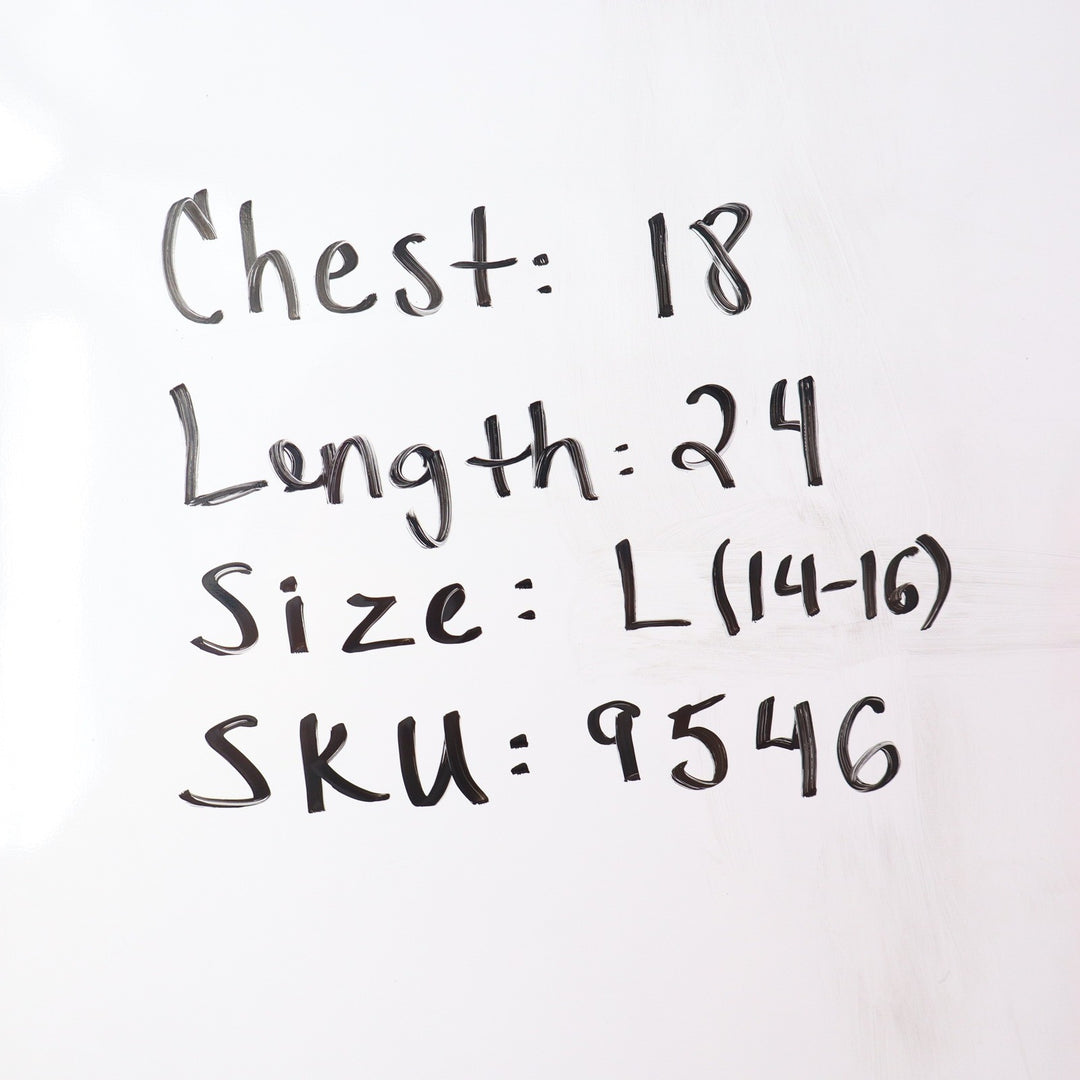 Chest: 18
Length: 24
Size: L (14-16)
SKU: 9546